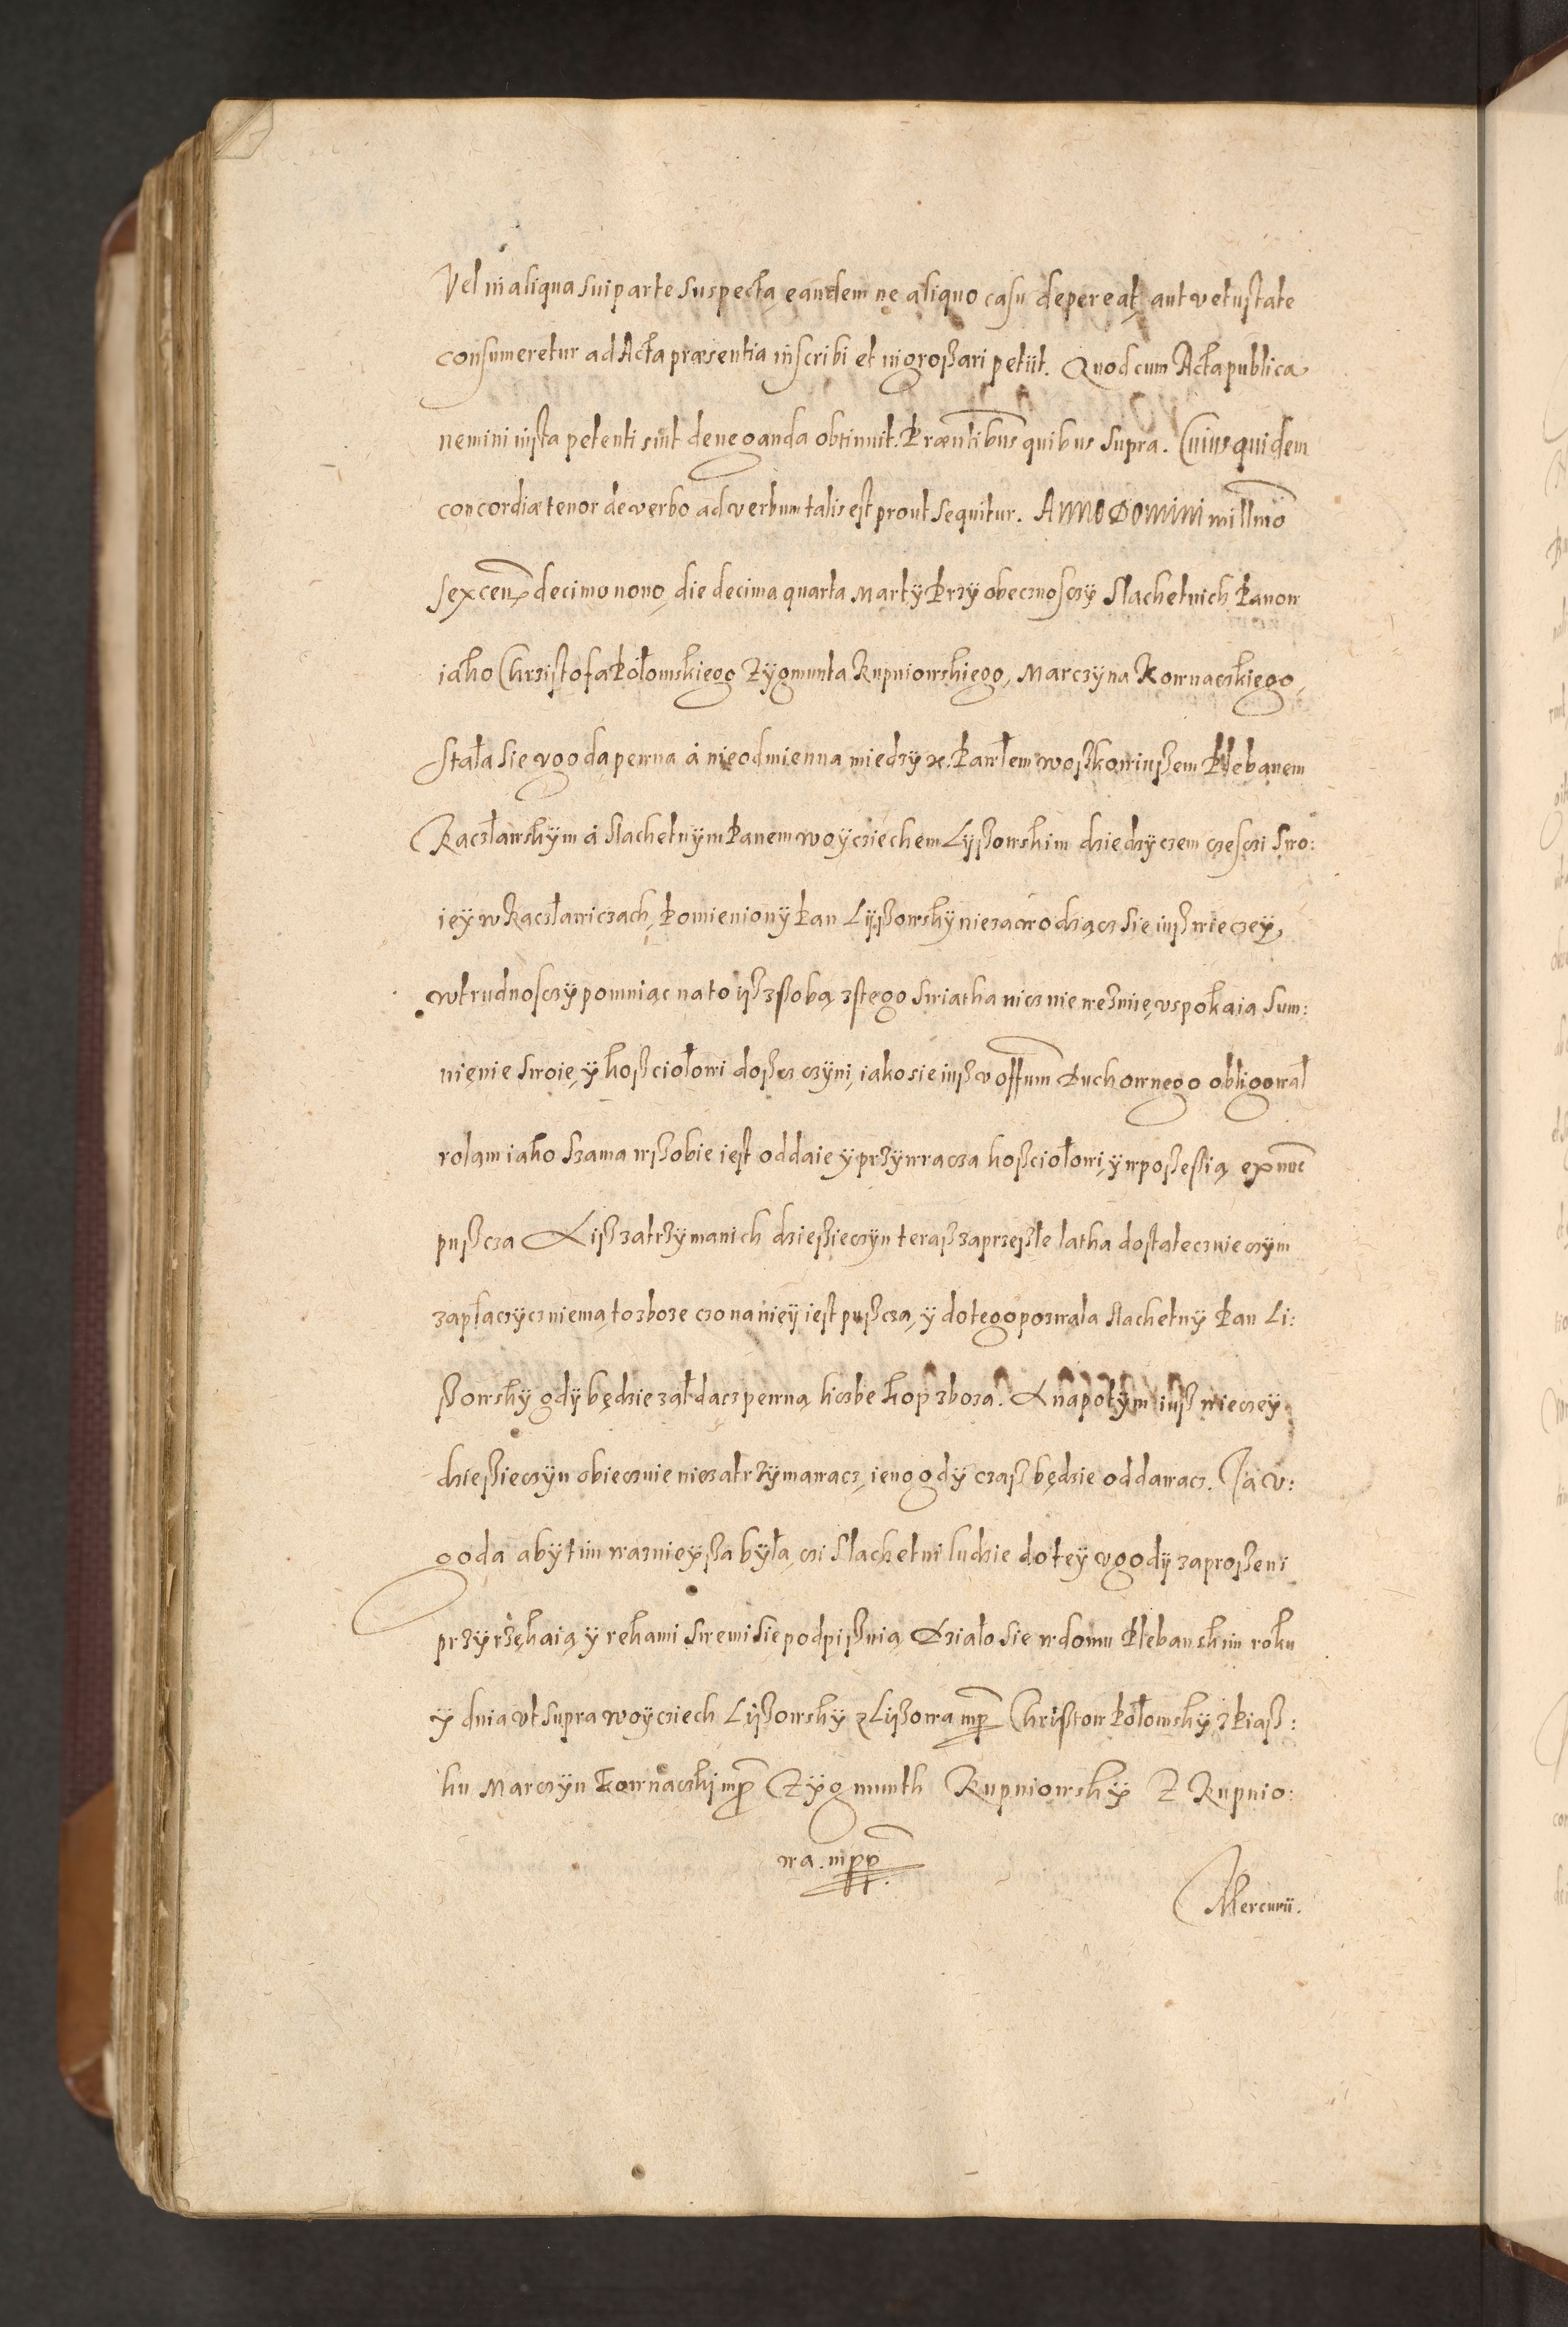 Vel in aliqua sui parte suspecta, eandem ne aliquo casu depereat, aut vetustate
consumeretur ad Acta præsentia inscribi et ingroßari petiit. Quod cum Acta publica
nemini iusta petenti sint deneganda obtinuit. Præntibus quibus supra. Cuius quidem
concordiæ tenor de verbo ad verbum talis est prout sequitur. Anno Domini millmo
sexcen. decimo nono, die decima quarta Martÿ Przÿ obecznosczÿ Slachetnich Panow
iako Chrzistofa Połomskiego Zÿgmunta Rupniowskiego, Marczÿna Kownaczkiego,
Stała sie vgoda pewna á nieodmienna miedzÿ x. Pawłem woßkowiußem Plebanem
Raczławskÿm á Slachetnÿm Panem woÿcziechem Lÿßowskim dziedzÿczem czesczi swo:
ieÿ w Raczławiczach, Pomienionÿ Pan Lÿßowskÿ niezawodzącz sie iuß wieczeÿ,
w trudnosczÿ pomniąc na to iß z ßobą z tego swiatha nicz nie weźmię, vspokaia sum:
nięnie swoie, ÿ koßciołowi doßcz czÿni, iako sie iuß v offium Duchownego obligował
rolam iako szama w ßobie iest oddaie ÿ przÿwracza koßciołowi, ÿ w poßeßią ex nunc
pußcza A iß zatrzÿmanich dzießieczÿn teraß za przeßłe latha dostatecznie czÿm
zapłaczÿcz niema, to zboze czo na nieÿ iest pußcza, ÿ do tego pozwala slachetnÿ Pan Li:
ßowskÿ gdÿ będzie zął dacz pewną liczbe kop zboza. A na potÿm iuß wieczeÿ
dzießieczÿn obiecznie nie zatrzÿmawacz, ieno gdÿ czaß będzie oddawacz. Ta v:
goda abÿ tim waznieÿßa bÿła, czi Slachetni ludzie do teÿ vgodÿ zaproßeni
przÿrzękaią ÿ rekami swemi sie podpißuią Działo sie w domu Plebanskim roku
ÿ dnia vt supra woÿcziech Lÿßowskÿ z Lißowa mp Chrißtow Połomskÿ z Piaß:
ku Marczÿn Kownaczki mp Zÿgmunth Rupniowskÿ Z Rupnio:
wa. mpp
Mercurii.